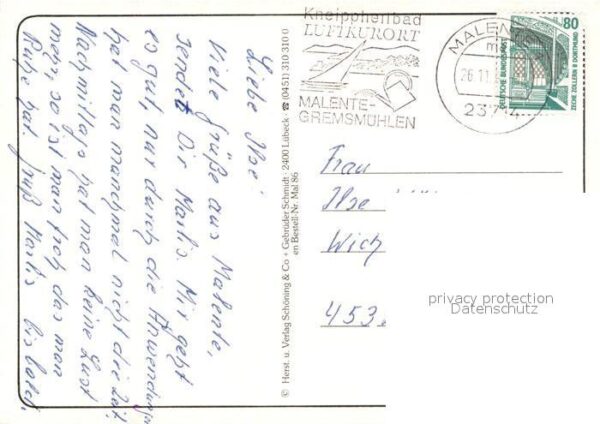 Liebe Ilse!
Viele Grüße aus Malente,
sendet Dir Marlis. Mir geht
es gut, nur durch die Anwendungen
hat man manchmal nicht die Zeit.
Nachmittags hat man keine Lust
mehr, so ist man froh das man
Ruhe hat. Gruß Marlis bis bald.
© Herst. u. Verlag Schöning & Co + Gebrüder Schmidt · 2400 Lübeck · ☎ (0451) 310 310 0
en Bestell-Nr. Mal 86
Kneippheilbad
LUFTKURORT
MALENTE-
GREMSMÜHLEN
MALENTE
26.11.
23714
80
DEUTSCHE BUNDESPOST
ZECHE ZOLLERN II DORTMUND
Frau
Ilse
Wich
453
privacy protection
Datenschutz